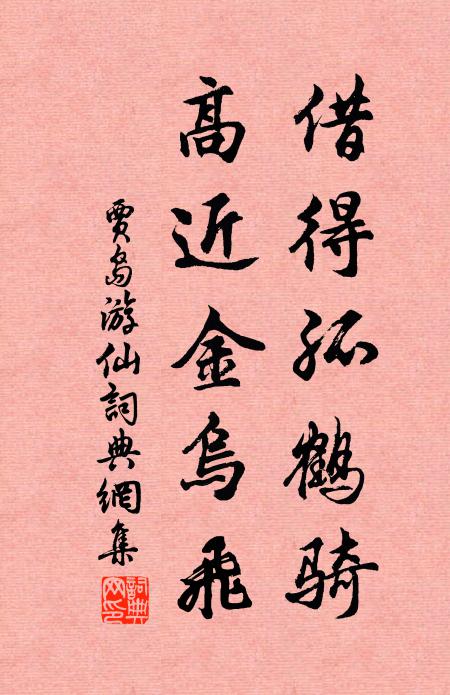 借得孤鶴骑
高近金烏飛
賈島游仙詞典網集
詞典网印